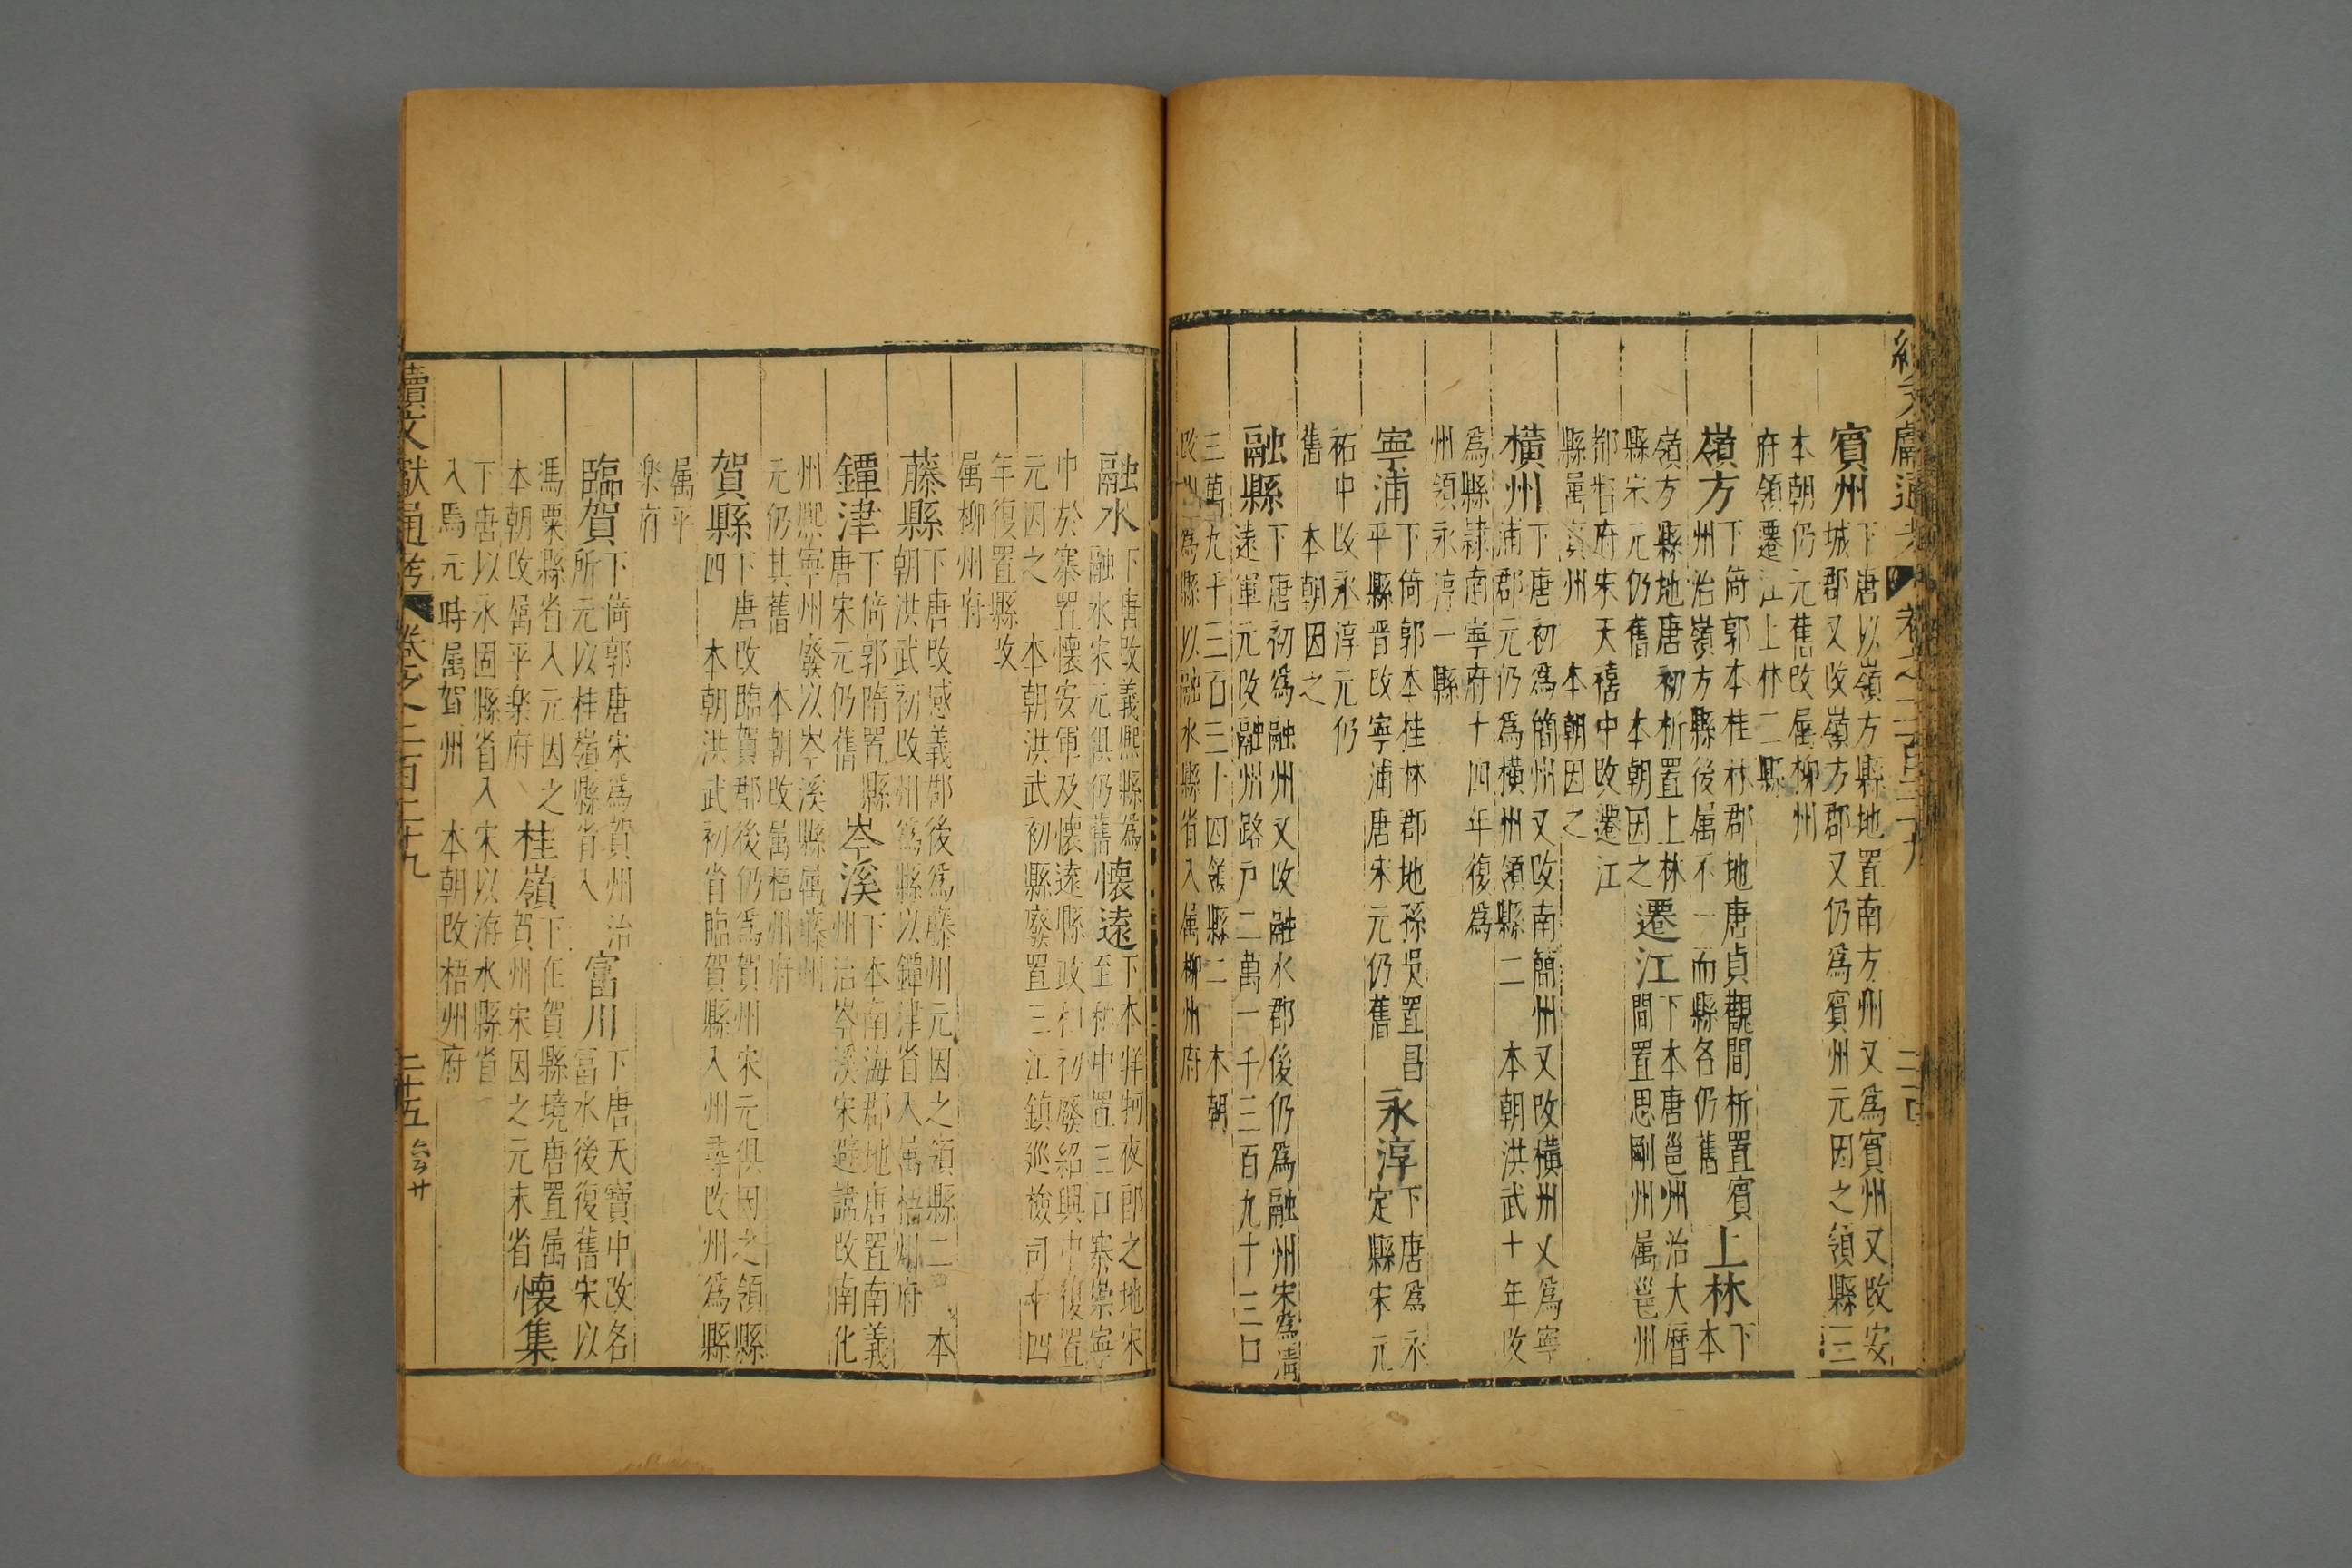 賓州下唐以嶺方縣地置南方州又爲賓州又改安
城郡又改嶺方郡又仍爲賓州元因之領縣三
本朝仍元舊改屬柳州
府領遷江上林二縣
嶺方下倚郭本桂林郡地唐貞觀間析置賓
州治嶺方縣後属不一而縣各仍舊上林下本
嶺方縣地唐初析置上林
縣宋元仍舊 本朝因之遷江下本唐邕州治大曆
間置思剛州属邕州
都督府宋天禧中改遷江
縣属賓州 本朝因之
橫州下唐初爲簡州又改南簡州又改橫州又爲寧
浦郡元仍爲橫州領縣二 本朝洪武十年改
爲縣隸南寧府十四年復爲
州領永淳一縣
寧浦下倚郭本桂林郡地孫吳置昌
平縣晋改寧浦唐宋元仍舊永淳下唐爲永
定縣宋元
祐中改永淳元仍
舊 本朝因之
融縣下唐初爲融州又改融水郡後仍爲融州宋爲清
遠軍元改融州路戸二萬一千三百九十三口
三萬九千三百三十四領縣二 本朝
改州爲縣以融水縣省入属柳州府
融水下唐改義熙縣爲
融水宋元俱仍舊懷遠下本牂牁夜郎之地宋
至和中置三口寨崇寧
中於寨置懷安軍及懷遠縣政和初廢紹興中復置
元因之 本朝洪武初縣廢置三江鎮廵檢司十四
年復置縣改
属柳州府
藤縣下唐改感義郡後爲藤州元因之領縣二 本
朝洪武初改州爲縣以鐔津省入属梧州府
鐔津下倚郭隋置縣
唐宋元仍舊岑溪下本南海郡地唐置南義
州治岑溪宋避諱改南化
州熙寧州廢以岑溪縣属藤州
元仍其舊 本朝改属梧州府
賀縣下唐改臨賀郡後仍爲賀州宋元俱因之領縣
四 本朝洪武初省臨賀縣入州尋改州爲縣
属平
樂府
臨賀下倚郭唐宋爲賀州治
所元以桂嶺縣省入富川下唐天寶中改各
富水後復舊宋以
馮乗縣省入元因之
本朝改属平樂府桂嶺下在賀縣境唐置属
賀州宋因之元末省懷集
下唐以永固縣省入宋以洊水縣省
入焉元時属賀州 本朝改梧州府
續文獻通考 卷之二百二十九 二十五